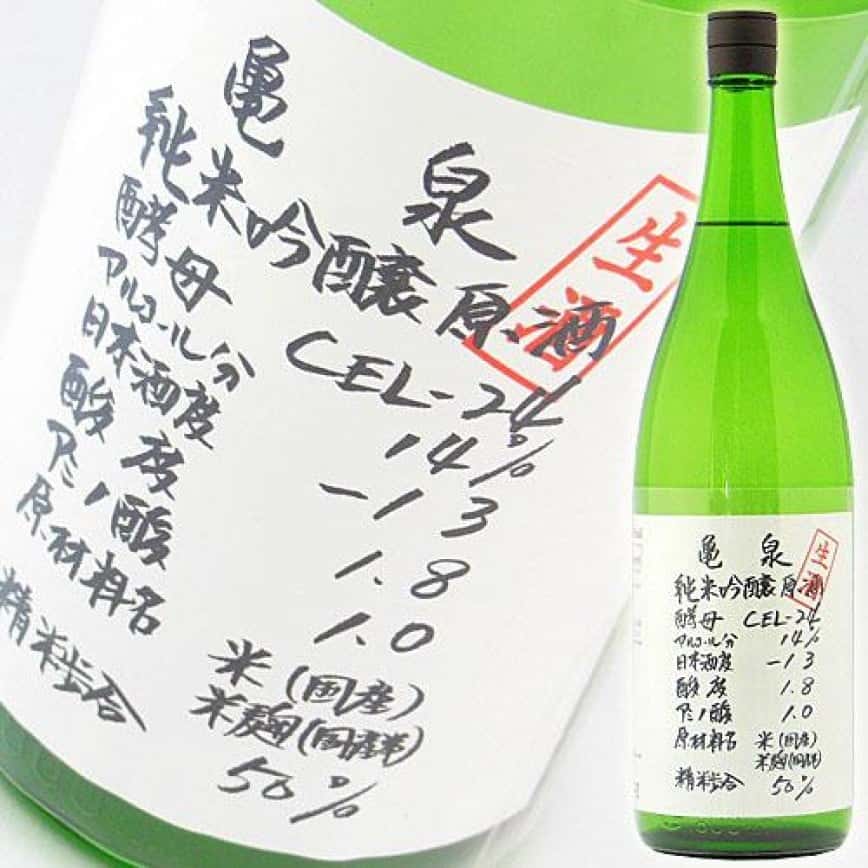 亀泉
生酒
純米吟醸原酒
酵母 CEL-24
アルコール分 14%
日本酒度 -13
酸度 1.8
アミノ酸 1.0
原材料名 米(国産)
米麹(国産米)
精米歩合 50%
亀泉
生酒
純米吟醸原酒
酵母 CEL-24
アルコール分 14%
日本酒度 -13
酸度 1.8
アミノ酸 1.0
原材料名 米(国産)
米麹(国産米)
精米歩合 50%